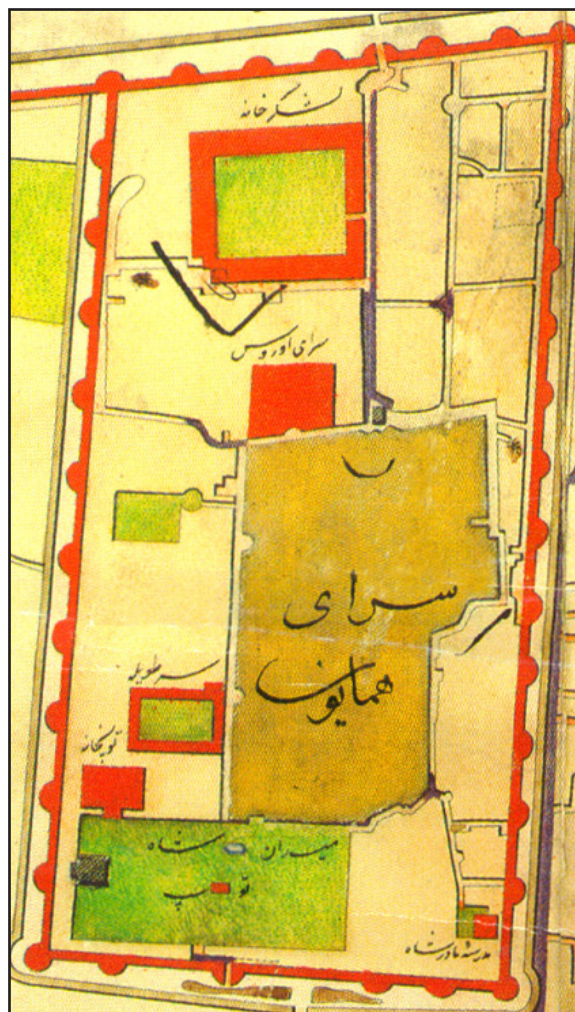 لشگر خانه
سرای اوروس
سرای
همایون
سر طویله
توپخانه
میدان شاه
توپ
مدرسه مادر شاه